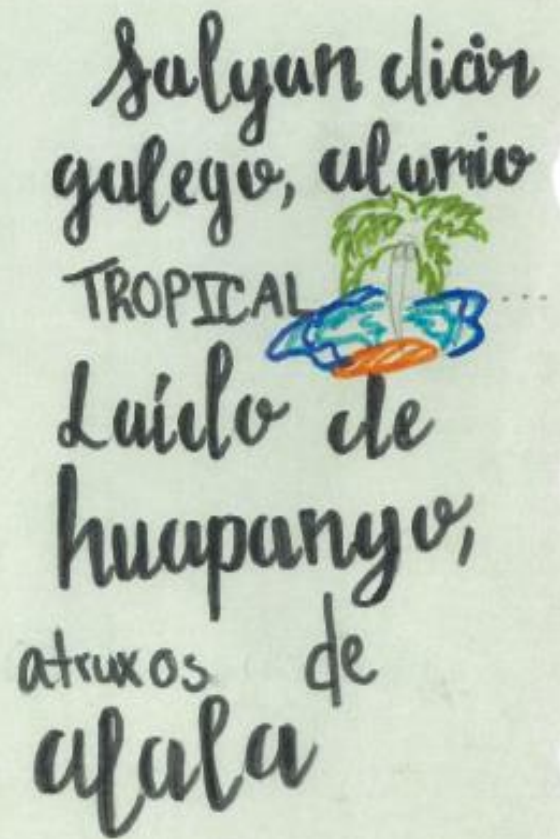 Salgan dicir
galego,
TROPICAL ....
Laído de
huapango,
atruxos de
alala